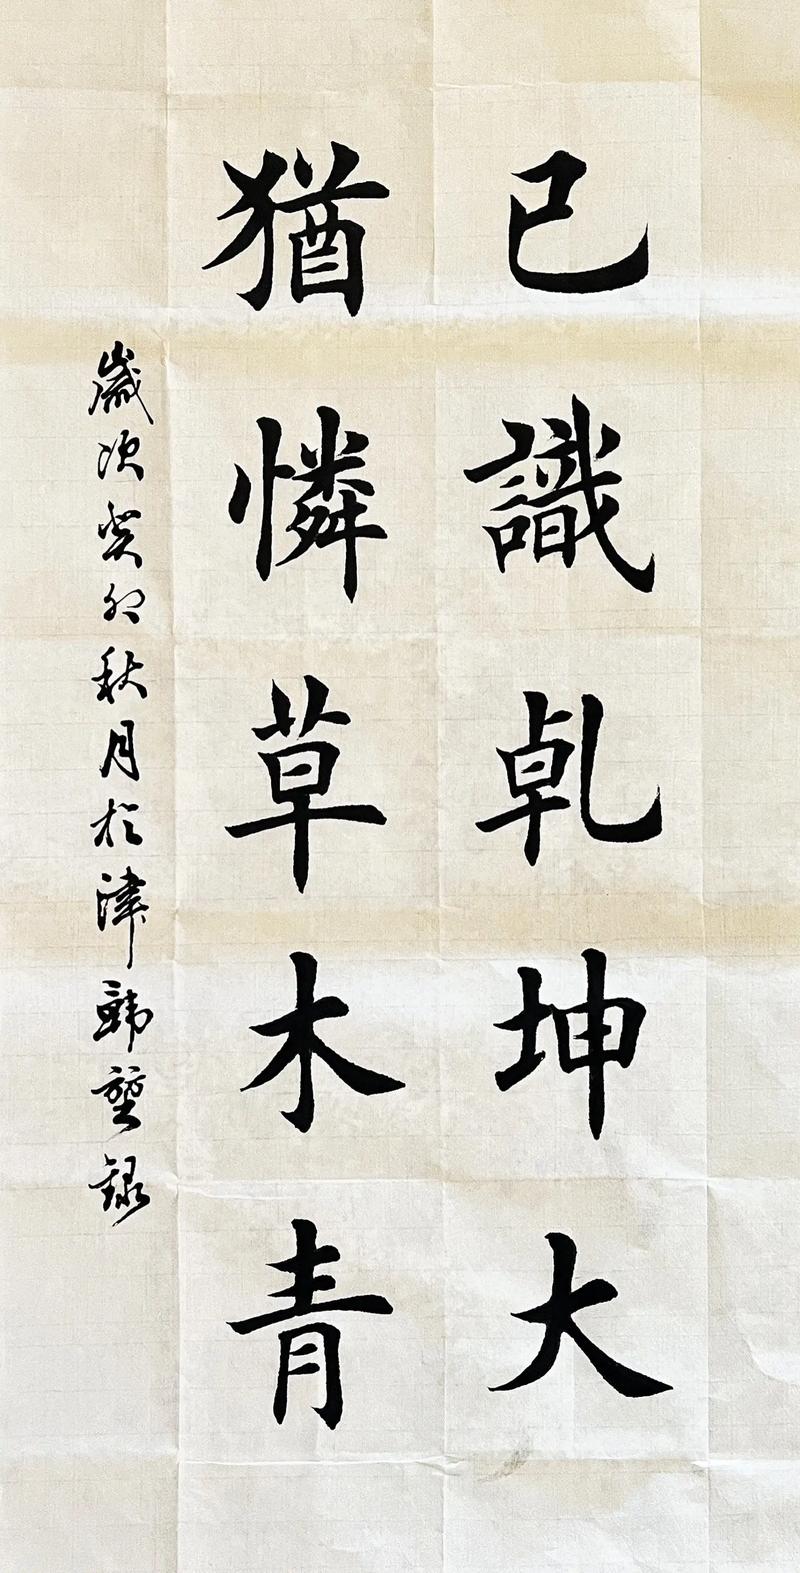 已識乾坤大
猶憐草木青
歲次癸卯秋月於津韓堃錄